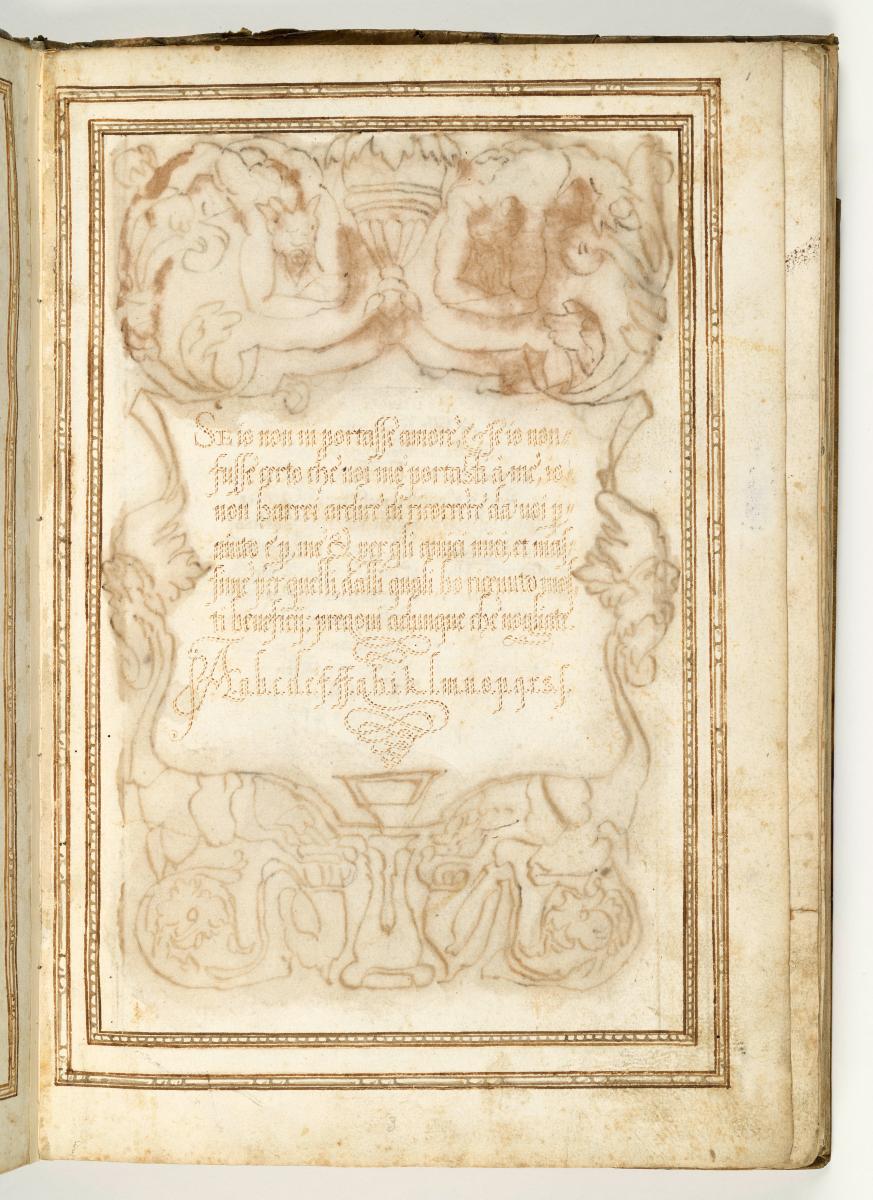 SE io non ui portasse amore, & se io non
fusse certo che uoi me portasti à me, io
non harrei ardire di ricorrere da uoi p
aiuto e p me & per gli amici miei, et mas-
sime per quelli, dalli quali ho riceuuto
ti beneficij: pregoui adunque che uogliate
A a b c d e f ff g h i k l m n o p q r s f
3